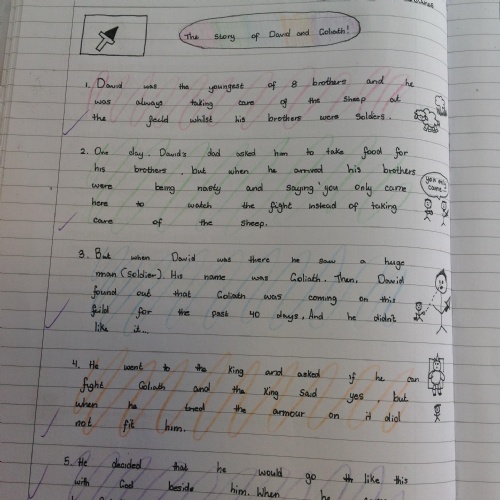 The story of David and Goliath!
1. David was the youngest of 8 brothers and he
was always taking care of the sheep at
the feild whilst his brothers were solders.
2. One day. David's dad asked him to take food for
his brothers, but when he arrived his brothers
were being nasty and saying 'you only came
here to watch the fight instead of taking
care of the sheep.
you only came!
3. But when David was there he saw a huge
man (soldier). His name was Goliath. Then, David
found out that Goliath was coming on this
feild for the past 40 days, And he didn't
like it...
4. He went to the King and asked if he can
fight Goliath and the King said yes, but
when he tried the armour on it did
not fit him.
5. He decided that he would go like this
with God beside him. When he